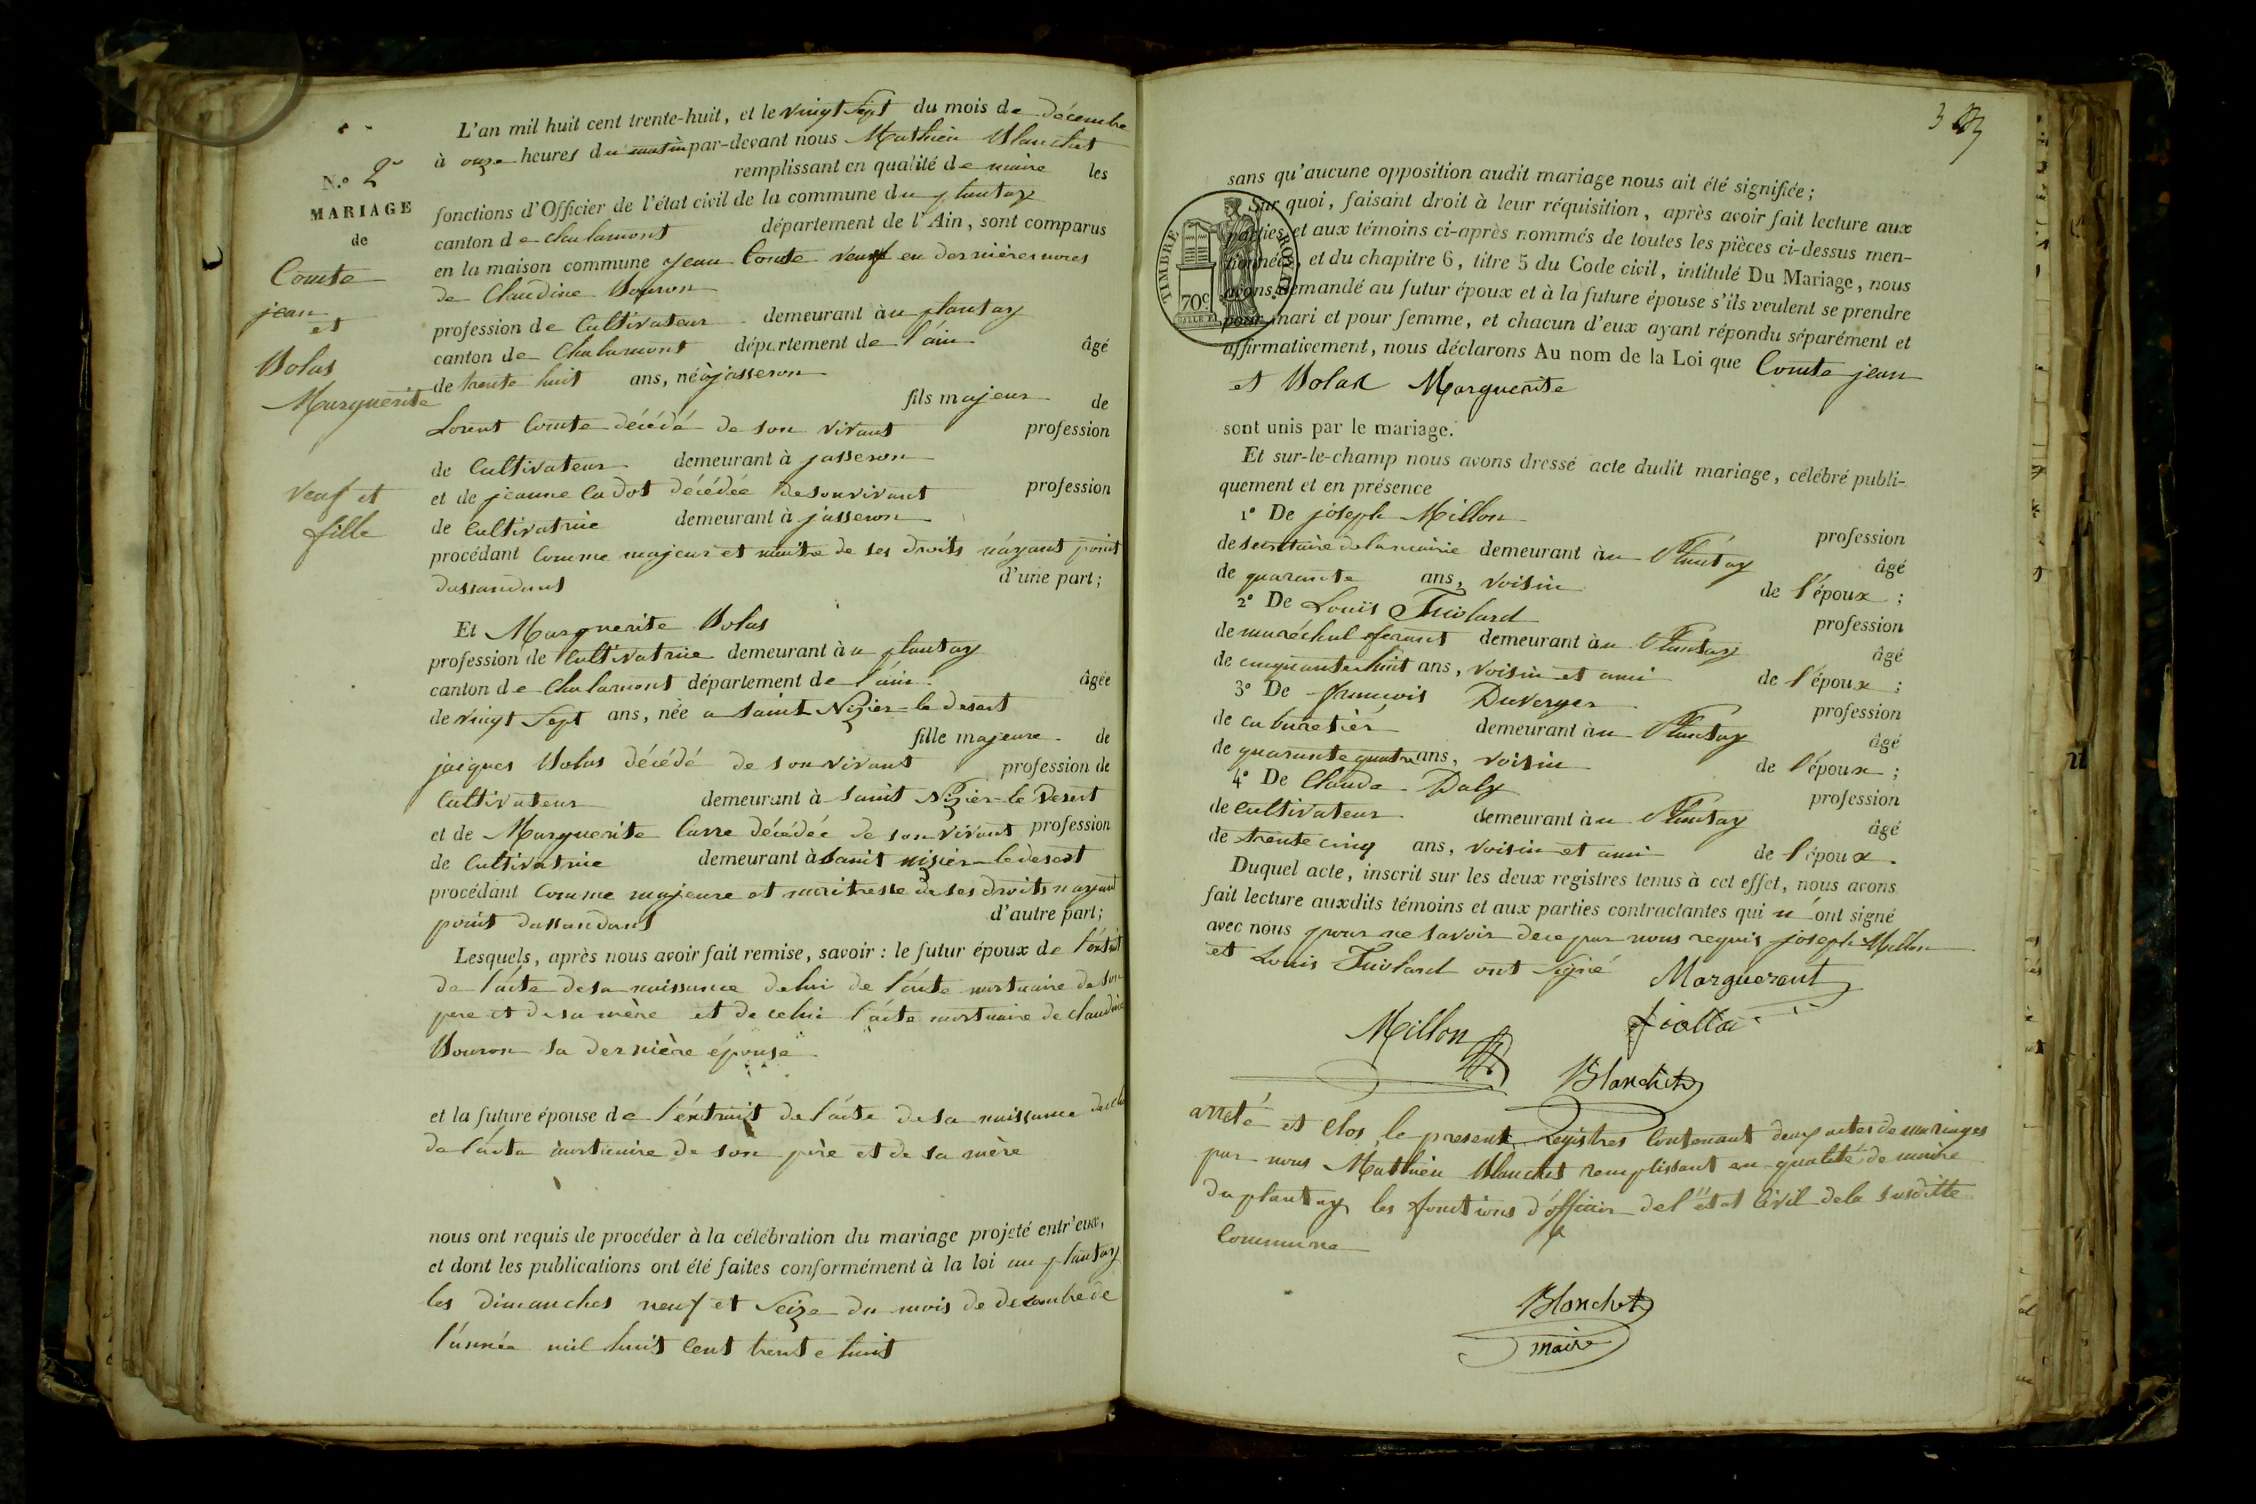 N.º 2e
MARIAGE
de
Comte
jean
et
Bolas
Marguerite
veuf et
fille
L'an mil huit cent trente-huit, et le vingt sept du mois de décembre
à onze heures du matin par-devant nous Mathieu Blanchet
remplissant en qualité de maire les
fonctions d'Officier de l'état civil de la commune du plantay
canton de chalamont département de l'Ain, sont comparus
en la maison commune jean Comte veuf en dernières noces
de Claudine Bouron
profession de Cultivateur demeurant à u plantay
canton de Chalamont département de l'ain âgé
de trente huit ans, né à jasseron
fils majeur de
Lorent Comte décédé de son vivant profession
de Cultivateur demeurant à jasseron
et de jeanne Cadot décédée de son vivant profession
de Cultivatrice demeurant à jasseron
procédant Comme majeur et maitre de ses droits n'ayant point
dassandans d'une part;
Et Marguerite Bolas
profession de Cultivatrice demeurant à u plantay
canton de Chalamont département de l'ain âgée
de vingt sept ans, née a Saint Nizier le desert
fille majeure de
jacques Bolas décédé de son vivant profession de
Cultivateur demeurant à Saint Nizier le Desert
et de Marguerite Carre décédée de son vivant profession
de Cultivatrice demeurant à Saint nizier le desert
procédant Comme majeure et maitresse de ses droits nayant
point dassandans d'autre part;
Lesquels, après nous avoir fait remise, savoir : le futur époux de l'extrait
de l'acte de sa naissance de lui de l'acte mortuaire de son
pere et de sa mère et de celui l'acte mortuaire de claudine
Bouron sa dernière épouse
et la future épouse de l'extrait de l'acte de sa naissance
de l'acte mortuaire de son père et de sa mère
nous ont requis de procéder à la célébration du mariage projeté entr'eux,
et dont les publications ont été faites conformément à la loi au plantay
les dimanches neuf et Seize du mois de decembre de
l'année mil huit Cent trente huit
3
TIMBRE ROYAL
70c
sans qu'aucune opposition audit mariage nous ait été signifiée;
Sur quoi, faisant droit à leur réquisition, après avoir fait lecture aux
parties et aux témoins ci-après nommés de toutes les pièces ci-dessus men-
tionnées, et du chapitre 6, titre 5 du Code civil, intitulé Du Mariage, nous
avons demandé au futur époux et à la future épouse s'ils veulent se prendre
pour mari et pour femme, et chacun d'eux ayant répondu séparément et
affirmativement, nous déclarons Au nom de la Loi que Comte jean
et Bolas Marguerite
sont unis par le mariage.
Et sur-le-champ nous avons dressé acte dudit mariage, célébré publi-
quement et en présence
1º De joseph Millon profession
de secretaire de la mairie demeurant à u Plantay âgé
de quarante ans, voisin de l'époux ;
2º De Louis Fiolard profession
de maréchal ferant demeurant à u Plantay âgé
de cinquante huit ans, voisin et ami de l'époux ;
3º De francois Duverger profession
de cabaretier demeurant à u Plantay âgé
de quarante quatre ans, voisin de l'époux ;
4º De Claude Daly profession
de cultivateur demeurant à u Plantay âgé
de trente cinq ans, voisin et ami de l'époux.
Duquel acte, inscrit sur les deux registres tenus à cet effet, nous avons
fait lecture auxdits témoins et aux parties contractantes qui n'ont signé
avec nous pour ne savoir de ce par nous requis joseph Millon
et Louis Fiolard ont signé Marguerant
Millon
Blanchet
arreté et Clos le present registres Contenant deux actes de mariages
par nous Mathieu Blanchet remplissant en qualité de maire
du plantay les fonctions d'officier de l'état Civil de la susditte
Commune
Blanchet
maire